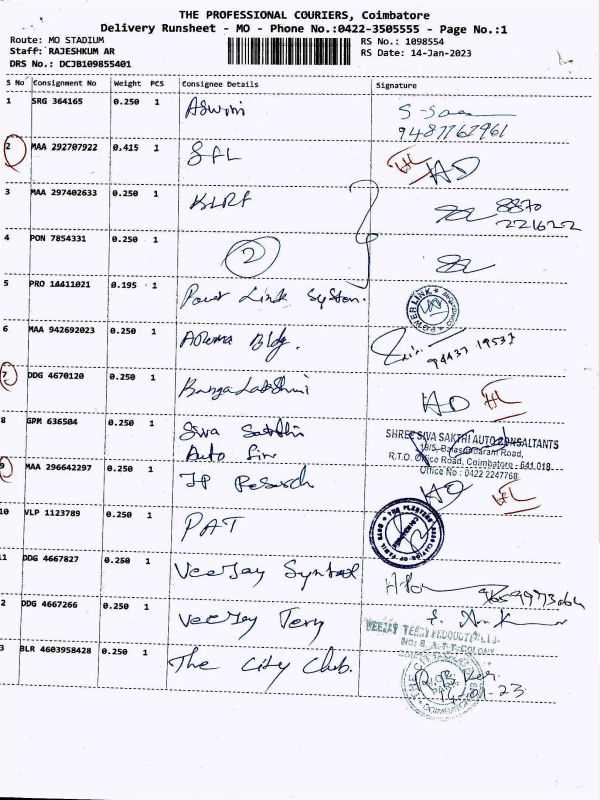 THE PROFESSIONAL COURIERS, Coimbatore
Delivery Runsheet - MO - Phone No.:0422-3505555 - Page No.:1
Route: MO STADIUM
Staff: RAJESHKUM AR
DRS No.: DCJB109855401
RS No.: 1098554
RS Date: 14-Jan-2023
S No Consignment No Weight PCS Consignee Details Signature
1 SRG 364165 0.250 1 Aswini
9487762961
2 MAA 292707922 0.415 1 SFL HL AD
3 MAA 297402633 0.250 1 KLRF 8870
221622
4 PON 7854331 0.250 1 2
5 PRO 14411021 0.195 1 Power Link System.
POWERLINK
6 MAA 942692023 0.250 1 Bldg. 94437 19537
7 DDG 4670120 0.250 1 AD HL
8 GPM 636504 0.250 1 Siva Sakthi
Auto
SHREE SIVA SAKTHI AUTO CONSALTANTS
19/5, Balasundaram Road,
R.T.O. Office Road, Coimbatore - 641 018
Office No : 0422 2247768
9 MAA 296642297 0.250 1 IP Research AD HL
10 VLP 1123789 0.250 1 PAT
THE PLANTERS' ASSOCIATION OF TAMIL NADU
11 DDG 4667827 0.250 1 VeeJay Syntex
2 DDG 4667266 0.250 1 VeeJay Terry
VEEJAY TERRY PRODUCTS LTD.
NO: 8, A.T.T. COLONY
3 BLR 4603958428 0.250 1 The City Club.
14-01-23
THE CITY CLUB
COIMBATORE